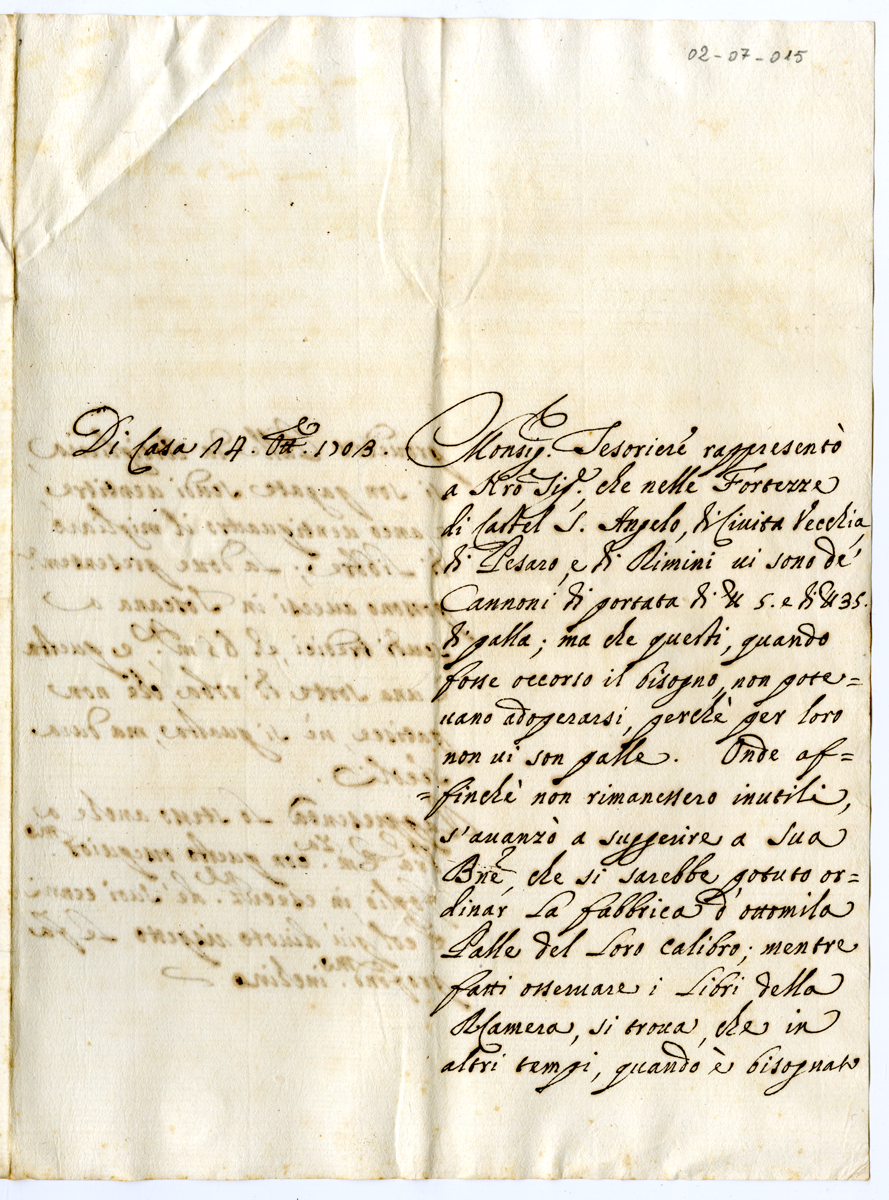 02-07-015
Di Casa 14. Ott.e 1703.
Monsig.r Tesoriere rappresentò
a Nro Sig.re che nelle Fortezze
di Castel S. Angelo, di Civita Vecchia,
di Pesaro, e di Rimini vi sono de'
Cannoni di portata di ℔ 5. e di ℔ 35.
di palla; ma che questi, quando
fosse occorso il bisogno, non pote=
uano adoperarsi, perchè per loro
non vi son palle. Onde af=
=finchè non rimanessero inutili,
s'avanzò a suggerire a Sua
Bne, che si sarebbe potuto or=
dinar la fabbrica d'ottomila
Palle del loro calibro; mentre
fatti osservare i Libri della
R Camera, si trova, che in
altri tempi, quando è bisognato